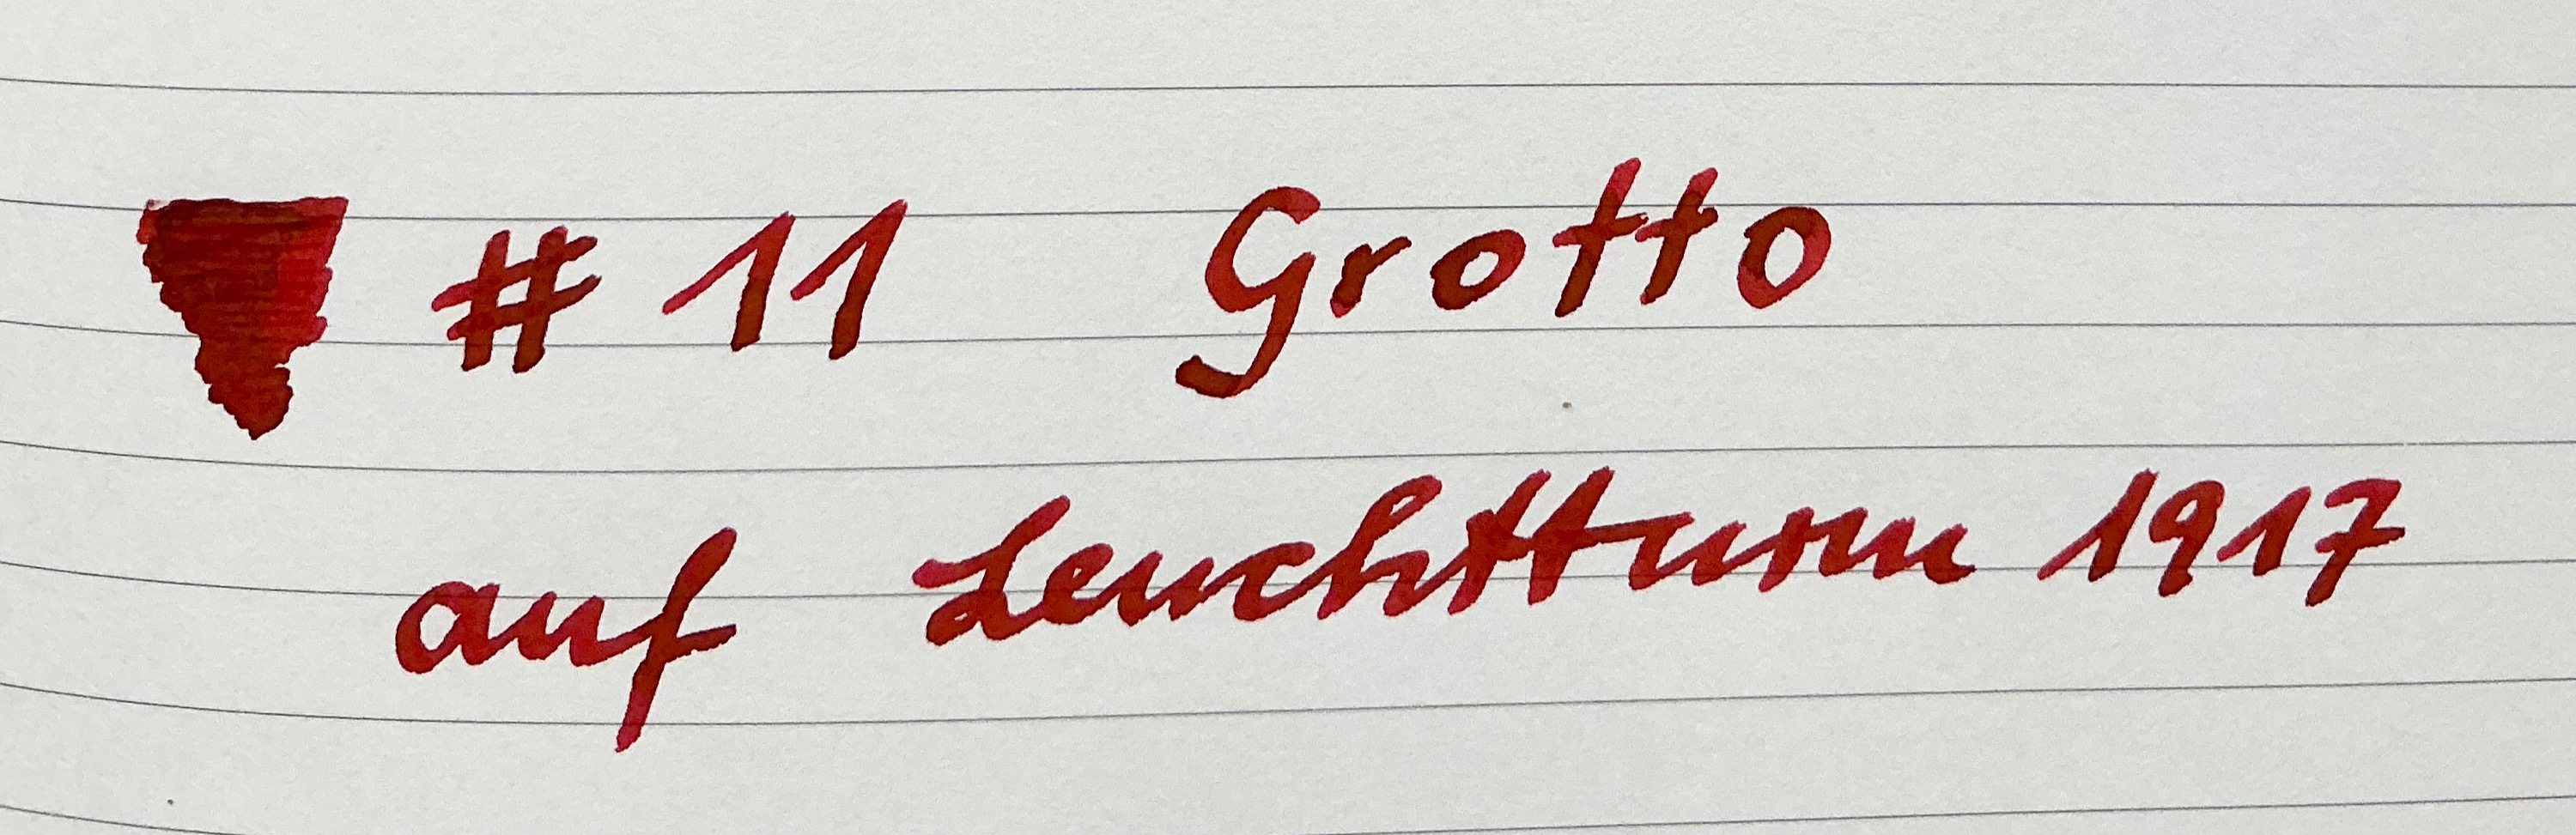 # 11 Grotto
auf Leuchtturm 1917